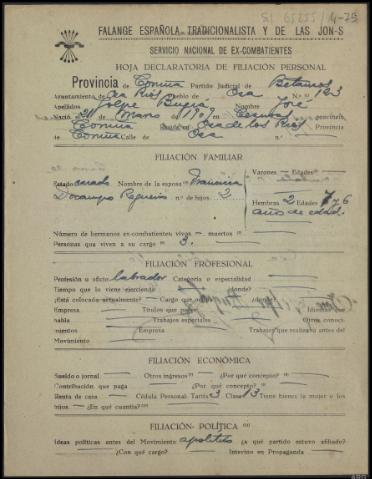 FALANGE ESPAÑOLA TRADICIONALISTA Y DE LAS JON-S
SERVICIO NACIONAL DE EX-COMBATIENTES
HOJA DECLARATORIA DE FILIACIÓN PERSONAL
Provincia de Coruña Partido Judicial de Betanzos
Ayuntamiento de Oza Rios Pueblo de Oza N.º 123
Apellidos Golpe Nombre José
Nació 21 Marzo 1909
Coruña Oza de los Rios Provincia
Coruña Calle de Oza
FILIACIÓN FAMILIAR
Varones — Edades
Estado casado Nombre de la esposa
Docampo n.º de hijos 2 Hembras 2 Edades 7 y 6
años de edad.
Número de hermanos ex-combatientes vivos — muertos "
Personas que viven a su cargo 3.
FILIACIÓN PROFESIONAL
Profesión u oficio labrador Categoría o especialidad
Tiempo que la viene ejerciendo
¿Está colocado actualmente? Cargo que
Empresa Títulos que Idiomas que
Trabajos especiales Otros conoci-
mientos Empresa Trabajos que realizaba antes del
Movimiento
FILIACIÓN ECONÓMICA
Sueldo o jornal — Otros ingresos? — ¿Por qué concepto? —
Contribución que paga ¿Por qué concepto? "
Renta de casa — Cédula Personal Tarifa 3 Clase 13 Tiene bienes la mujer o los
hijos — ¿En qué cuantía?
FILIACIÓN POLÍTICA
Ideas políticas antes del Movimiento apolitico ¿A qué partido estuvo afiliado?
¿Con qué cargo? Intervino en Propaganda —